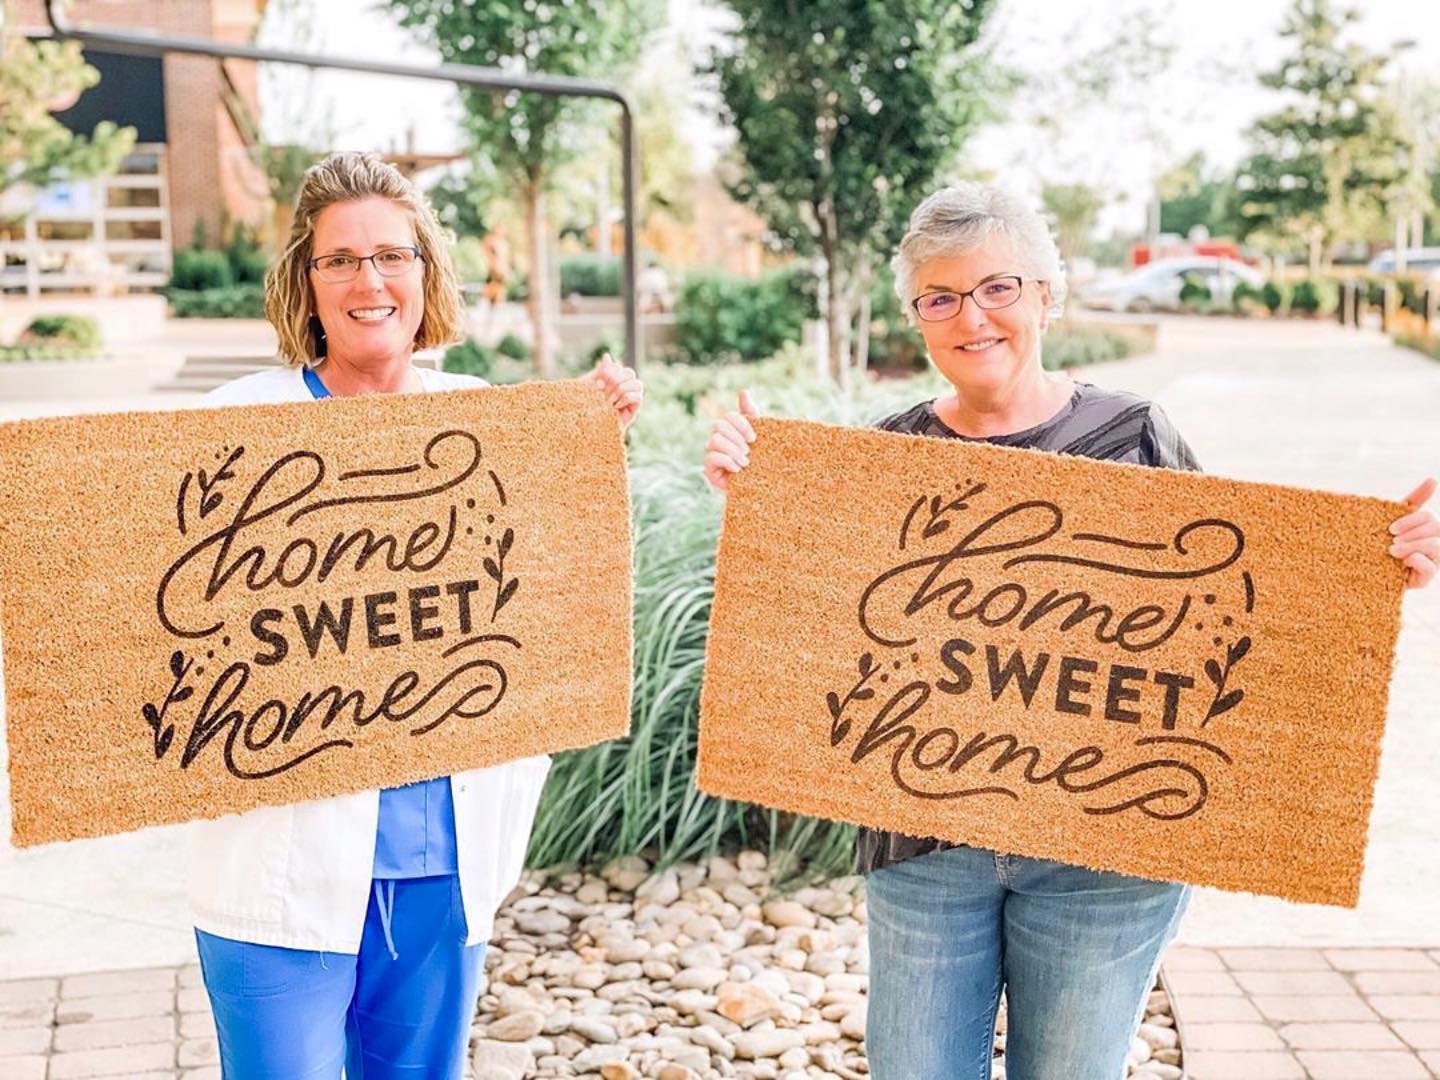 home
SWEET
home
home
SWEET
home